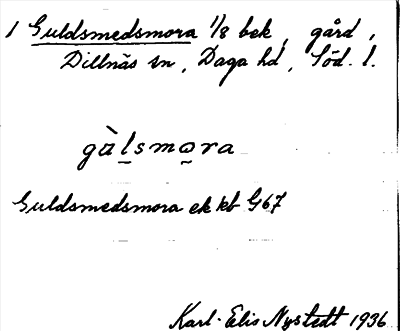 1 Guldsmedsmora 1/8 bek, gård,
Dillnäs sn, Daga hd, Söd. l.
gὰl̠smo̠ra
Guldsmedsmora ek kb G67
Karl-Elis Nystedt 1936